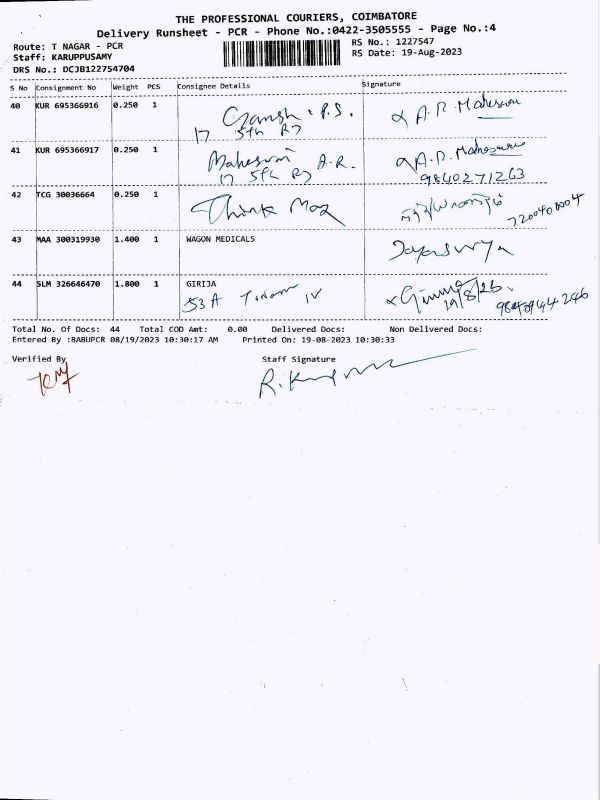 THE PROFESSIONAL COURIERS, COIMBATORE
Delivery Runsheet - PCR - Phone No.:0422-3505555 - Page No.:4
Route: T NAGAR - PCR
RS No.: 1227547
Staff: KARUPPUSAMY
RS Date: 19-Aug-2023
DRS No.: DCJB122754704
S No Consignment No Weight PCS Consignee Details Signature
40 KUR 695366916 0.250 1 Ganesh P.S. A.R. Maheswari
17 5th Rd
41 KUR 695366917 0.250 1 Maheswari A.R. A.R. Maheswari
17 5th Rd 9840271263
42 TCG 30036664 0.250 1 Think Mag
43 MAA 300319930 1.400 1 WAGON MEDICALS Jayasurya
44 SLM 326646470 1.800 1 GIRIJA
53 A IV 19/8/23
Total No. Of Docs: 44 Total COD Amt: 0.00 Delivered Docs: Non Delivered Docs:
Entered By :BABUPCR 08/19/2023 10:30:17 AM Printed On: 19-08-2023 10:30:33
Verified By Staff Signature